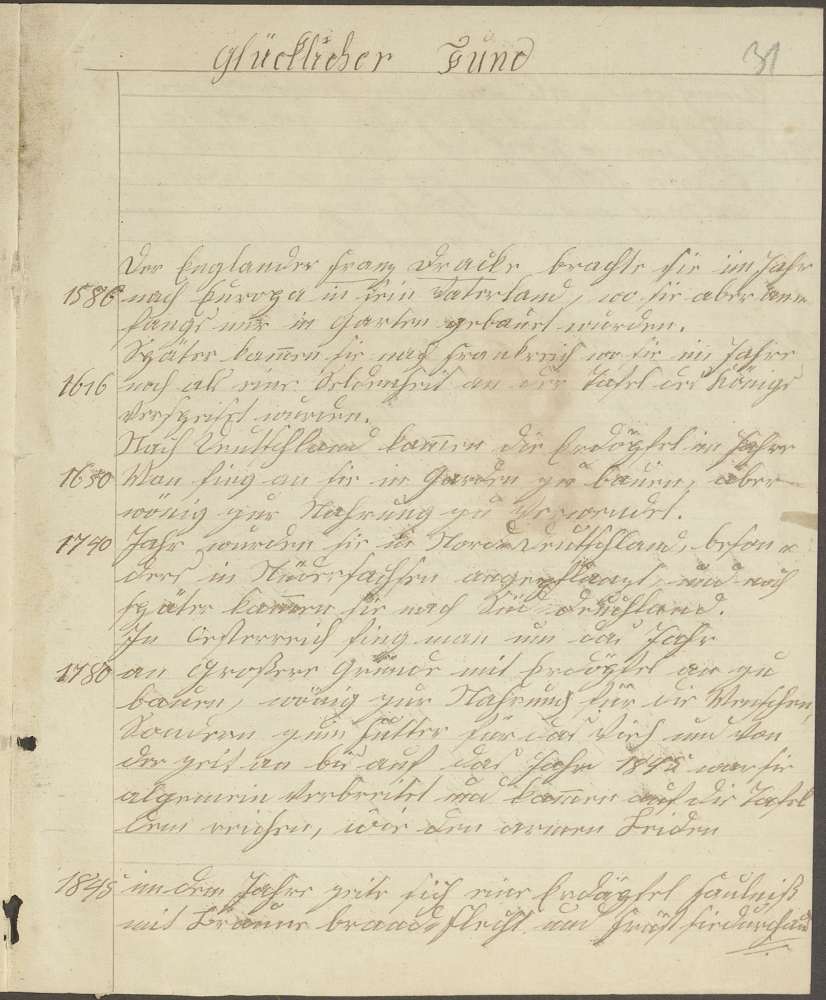 Glücklicher Fund
31
Der Englander Franz Dracke brachte sie im Jahr
1586 nach Europa in sein Vaterland, wo sie aber an=
fangs nur in Garten gebauet wurden.
Später kamen sie nach Frankreich wo sie im Jahre
1616 noch als eine Seldenheit an der Tafel des Königs
verspeiset wurden.
Nach Deutschland kamen die Erdöpfel im Jahre
1650 Man fing an sie in Garden zu bauen, aber
wönig zur Nahrung zu verwendet.
1740 Jahr wurden sie in Nord=Deutschland, beson=
ders in Niedersachsen angepflanzt, und noch
später kamen sie nach Süd=Deuchland.
In Oesterreich fing man um das Jahr
1780 an Großere Gründe mit Erdöpfel an zu
bauen, wönig zur Nahrung für die Menschen,
Sondern zum Futter für das Vieh und von
der zeit an bis auf das Jahr 1845 war sie
algemein verbreitet und kamen auf die Tafel
dem reichen, wie den armen Leiden
1845 in dem Jahre zeite sich eine Erdäpfel Faulniß
mit Braune brand=flecht und